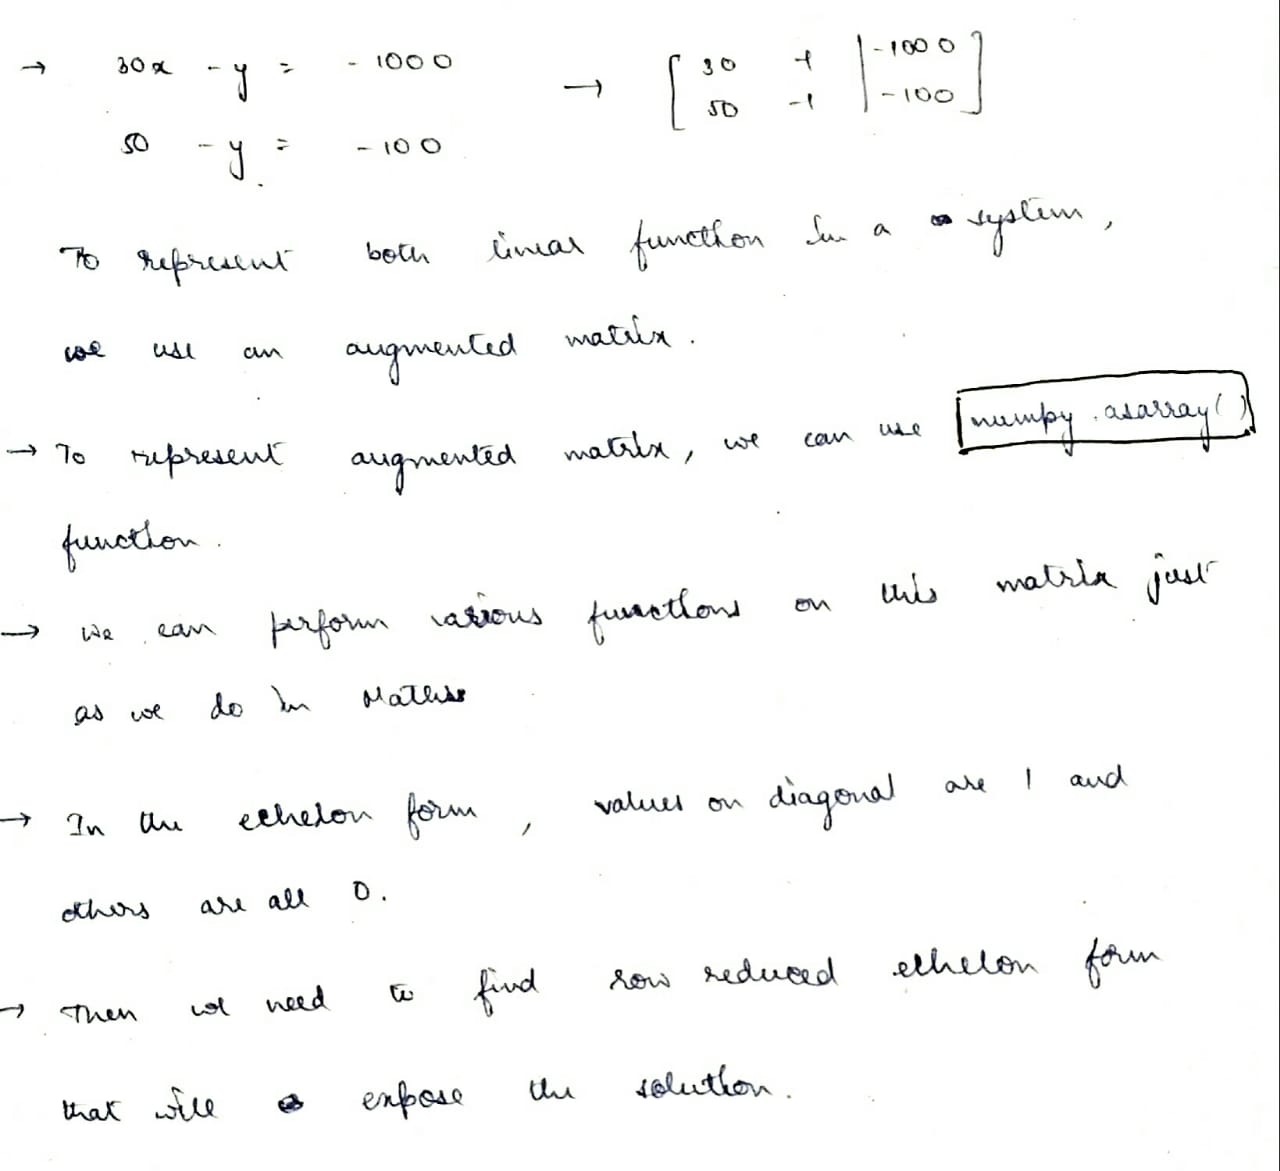 → 30x - y = - 1000 → [ 30 -1 | -1000 ]
50 - y = - 100 [ 50 -1 | -100 ]
To represent both linear function in a system,
we use an augmented matrix.
→ To represent augmented matrix, we can use numpy.asarray()
function.
→ we can perform various functions on this matrix just
as we do in Maths
→ In the echelon form, values on diagonal are 1 and
others are all 0.
→ Then we need to find row reduced echelon form
that will expose the solution.